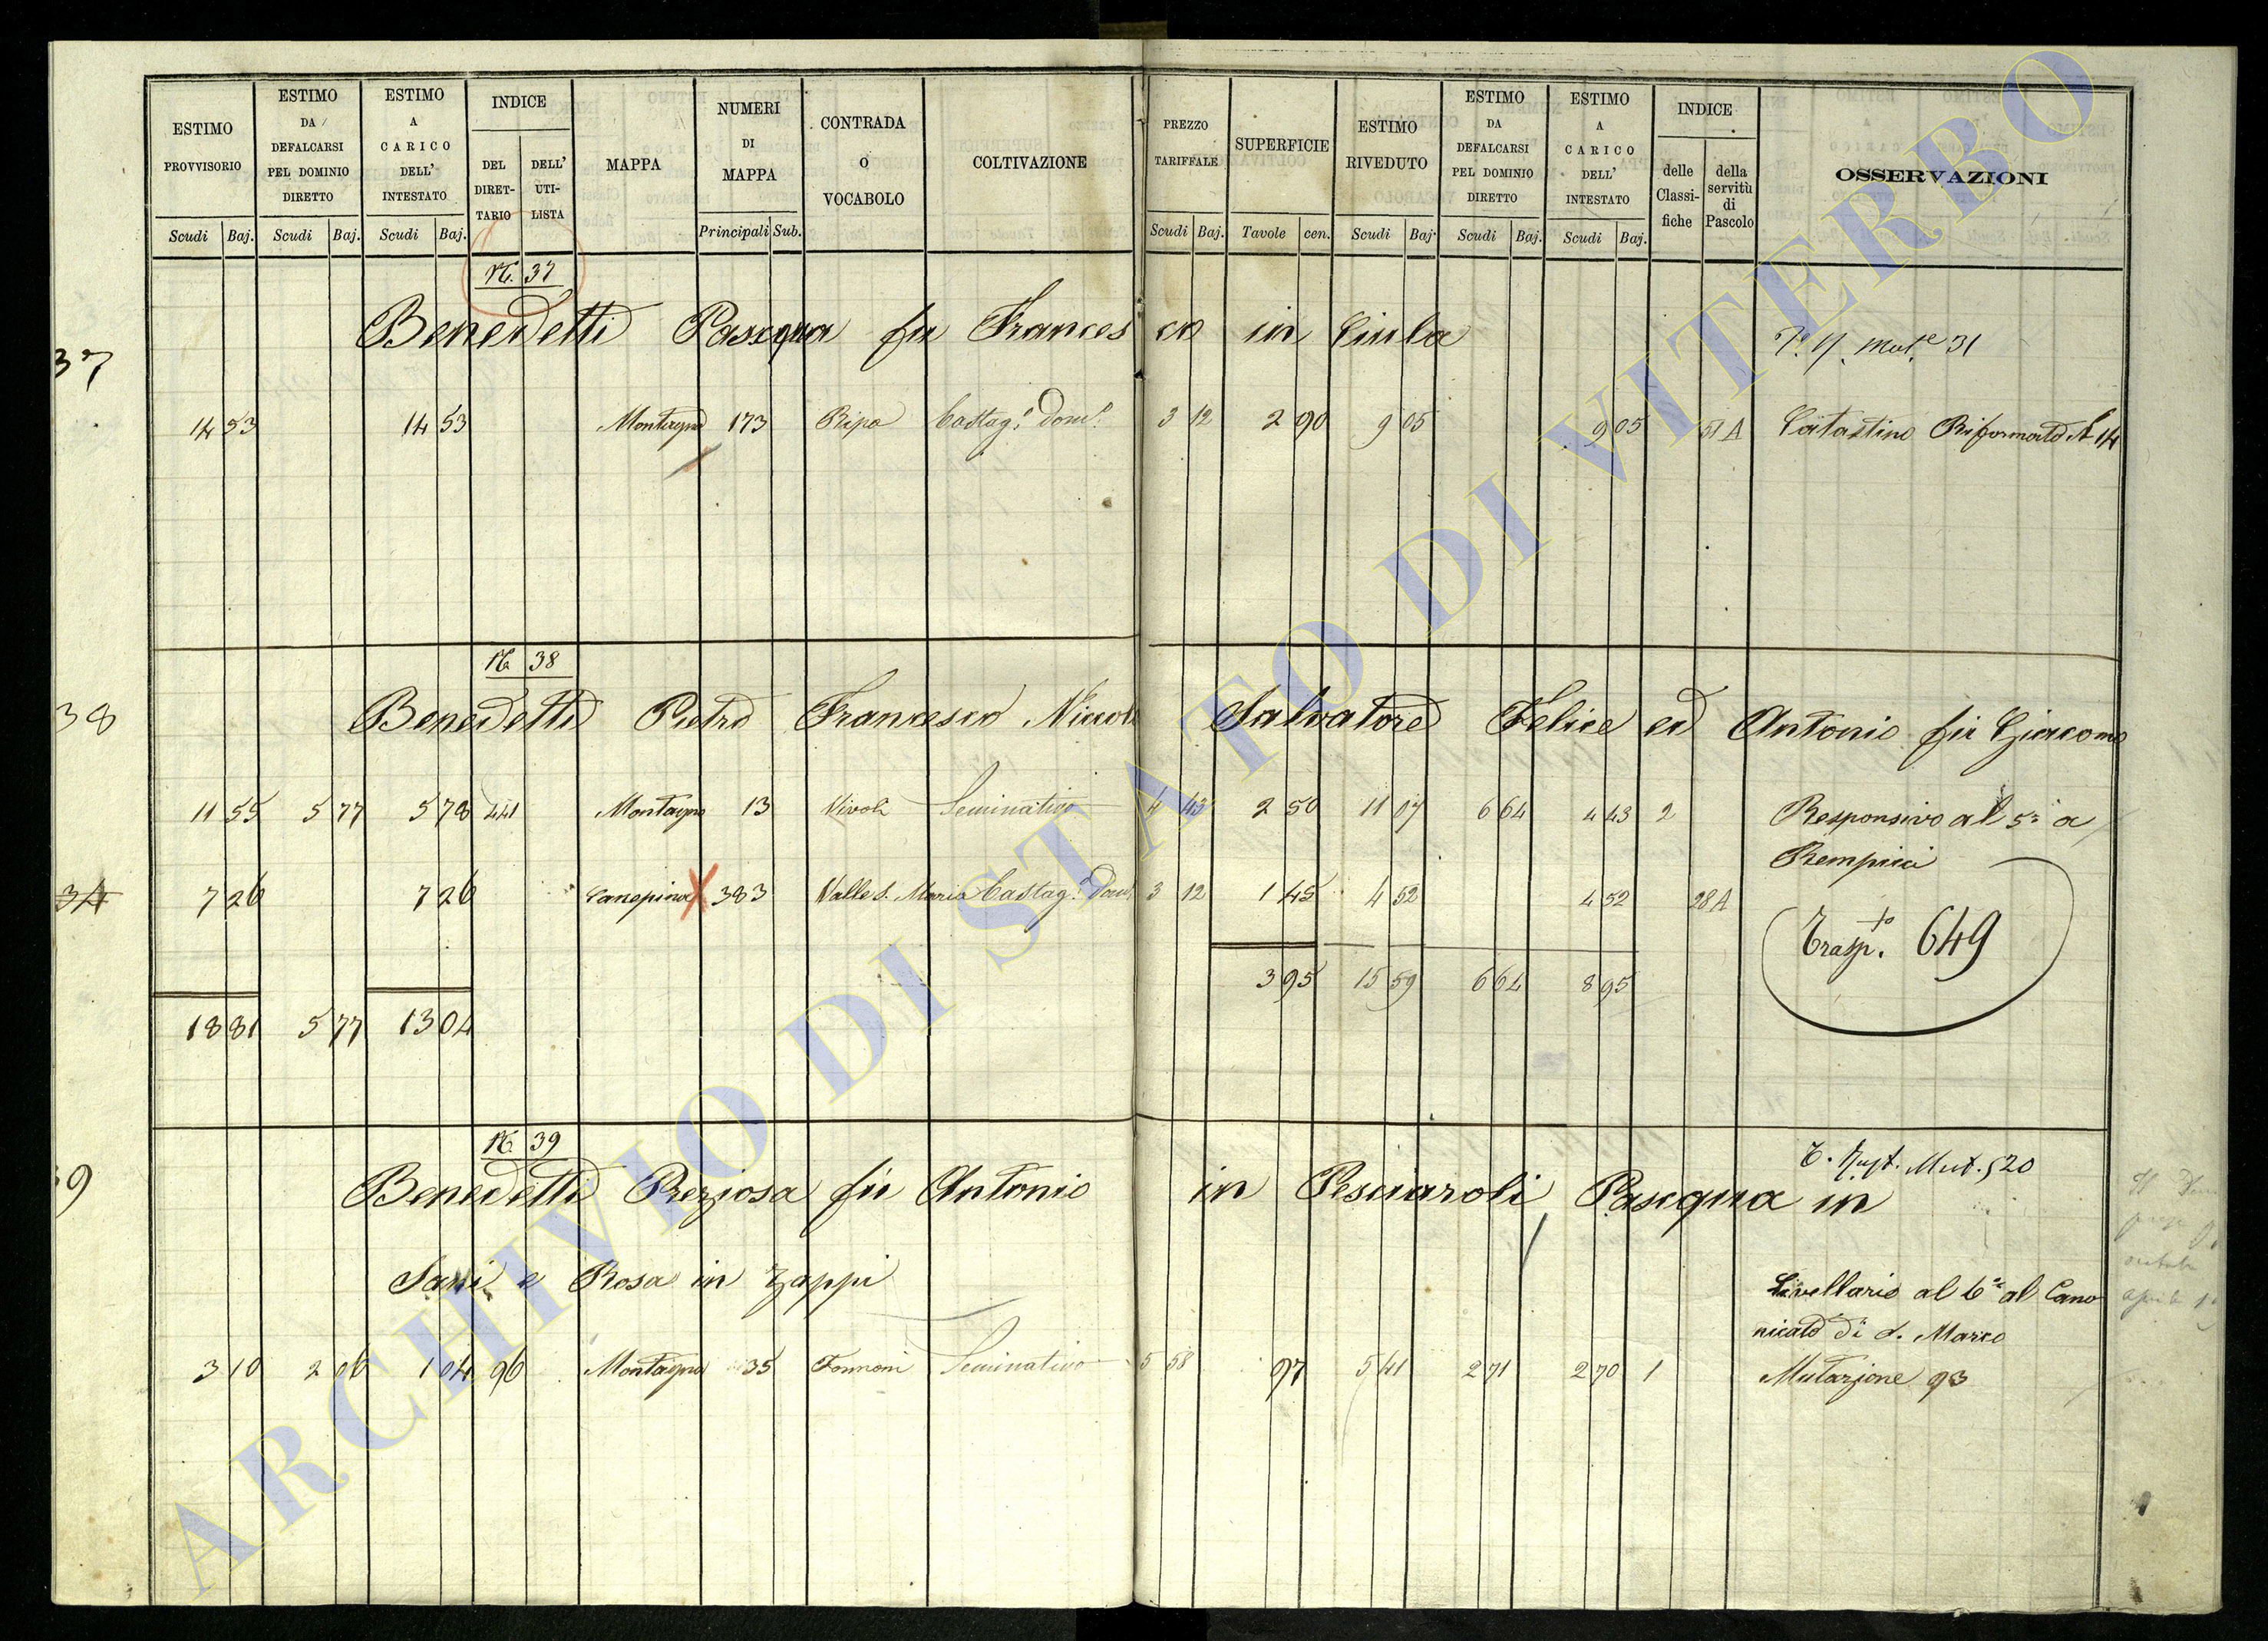 ESTIMO PROVVISORIO
ESTIMO DA DEFALCARSI PEL DOMINIO DIRETTO
ESTIMO A CARICO DELL' INTESTATO
INDICE
DEL DIRET- TARIO
DELL' UTI- LISTA
MAPPA
NUMERI DI MAPPA
CONTRADA O VOCABOLO
COLTIVAZIONE
PREZZO TARIFFALE
SUPERFICIE
ESTIMO RIVEDUTO
ESTIMO DA DEFALCARSI PEL DOMINIO DIRETTO
ESTIMO A CARICO DELL' INTESTATO
INDICE
delle Classi- fiche
della servitù di Pascolo
OSSERVAZIONI
Scudi Baj. Scudi Baj. Scudi Baj. Principali Sub. Scudi Baj. Tavole cen. Scudi Baj. Scudi Baj. Scudi Baj.
N. 37
37 Benedetti Pasqua fu Francesco in
31
14 53 14 53 173 Ripa Castag.o Dom.o 3 12 2 90 9 05 9 05 51 A Catastino Riformato N 14
N. 38
38 Benedetti Pietro Francesco Niccola Salvatore Felice ed Antonio fu Giacomo
11 55 5 77 5 78 441 Montagna 13 Vivoli Seminativo 4 43 2 50 11 07 6 64 4 43 2 Responsivo al 5.o a
Rempicci
34 7 26 7 26 Canepina 383 Valle S. Maria Castag.o Dom. 3 12 1 45 4 52 4 52 28 A
Trasp.to 649
3 95 15 59 6 64 8 95
18 81 5 77 13 04
N. 39
Mut. 520
9 Benedetti Preziosa fu Antonio in Pesciaroli, Pasqua in
Sani e Rosa in Zappi
Livellario al 6.o al Cano
nicato di S. Marco
3 10 2 06 1 04 96 Montagna 35 Seminativo 5 58 97 5 41 2 71 2 70 1 Mutazione 93
ARCHIVIO DI STATO DI VITERBO